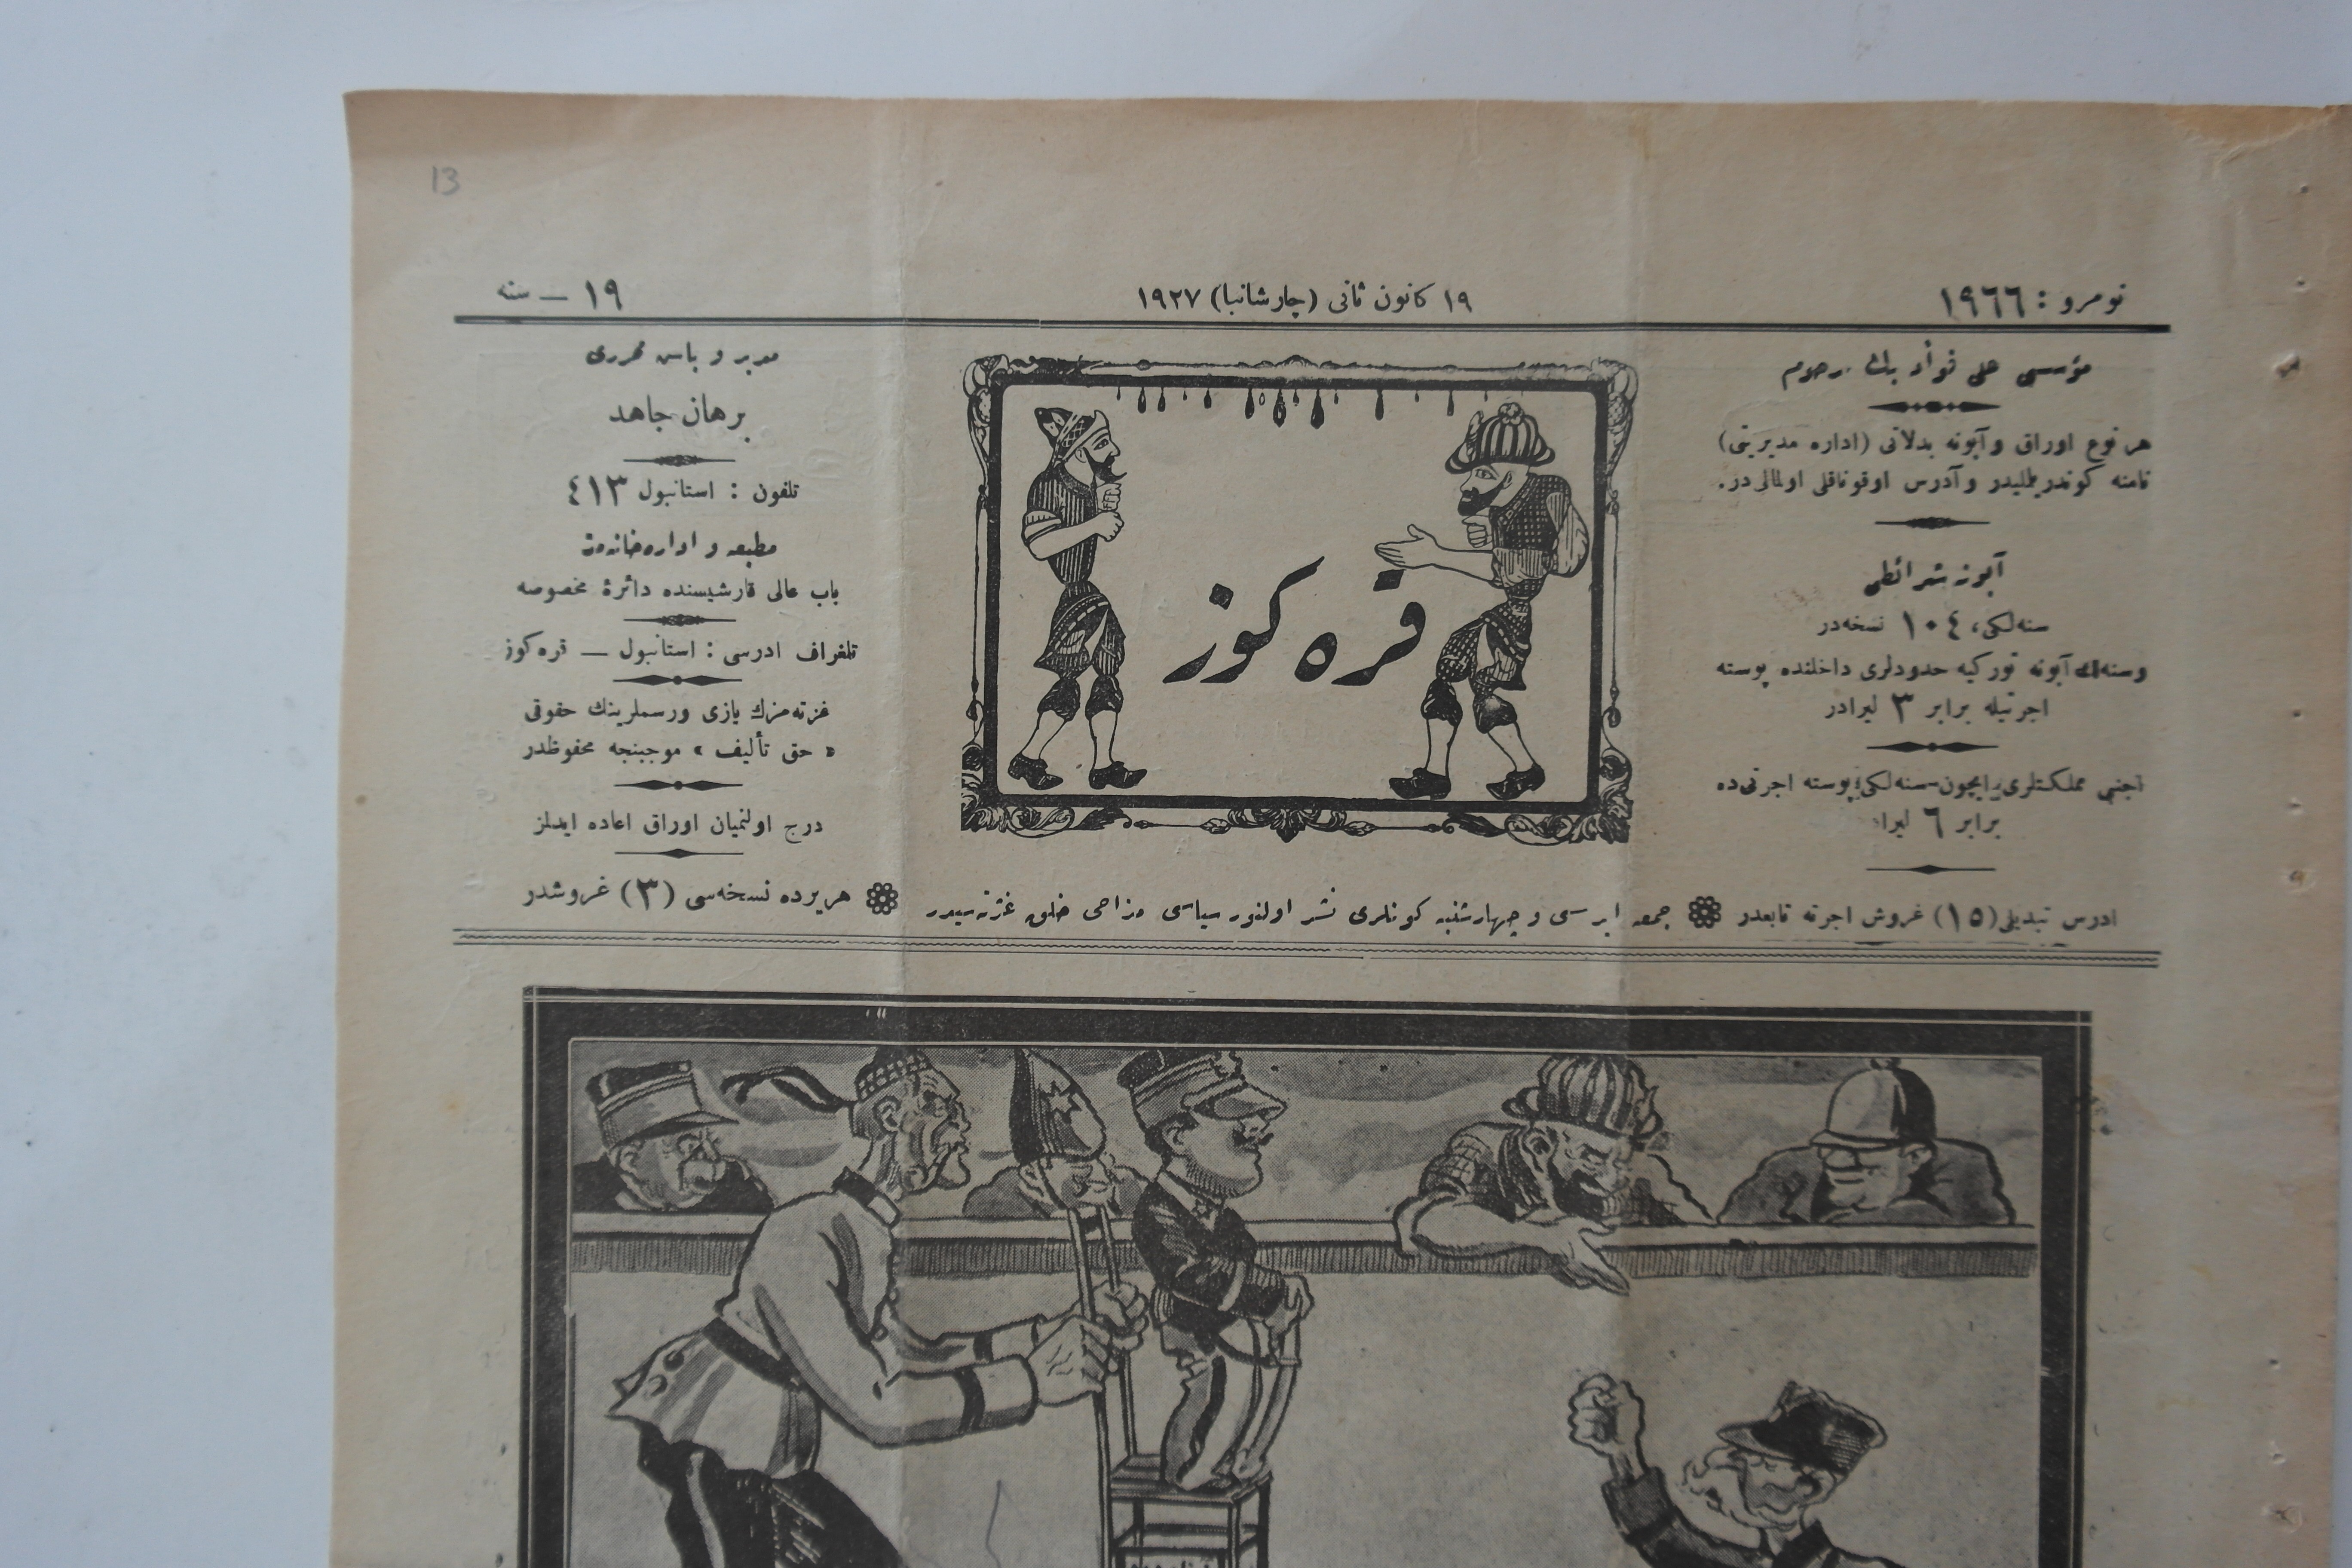 13
نومرو : ١٩٦٦
١٩ كانون ثانى (چارشانبا) ١٩٢٧
١٩ — سنه
مؤسسى على فؤاد بك مرحوم
هر نوع اوراق و آبونه بدلاتى (اداره مديريتى)
نامنه كوندريلمليدر و آدرس اوقوناقلى اولمالى در.
آبونه شرائطى
سنه لكى، ١٠٤ نسخه در
وسنه لك آبونه توركيه حدودلرى داخلنده پوسته
اجرتيله برابر ٣ ليرادر
اجنبى مملكتلرى ايچون سنه لكى پوسته اجرتى ده
برابر ٦ ليرا
قره كوز
مدير و باش محررى
برهان جاهد
تلفون : استانبول ٤١٣
مطبعه و اداره خانه سى
باب عالى قارشيسنده دائرۀ مخصوصه
تلغراف ادرسى : استانبول — قره كوز
غزته مزك يازى ورسملرينك حقوقى
« حق تأليف » موجبنجه محفوظدر
درج اولنميان اوراق اعاده ايدلز
ادرس تبديلى (١٥) غروش اجرته تابعدر
جمعه ايرتسى و چهارشنبه كونلرى نشر اولنور سياسى مزاحى خلق غزته سيدر
هر يرده نسخه سى (٣) غروشدر